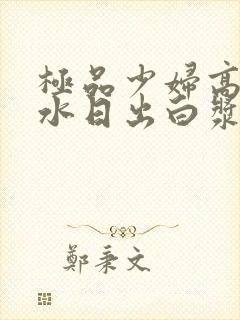 極品少婦高
水日出白漿
鄭秉文